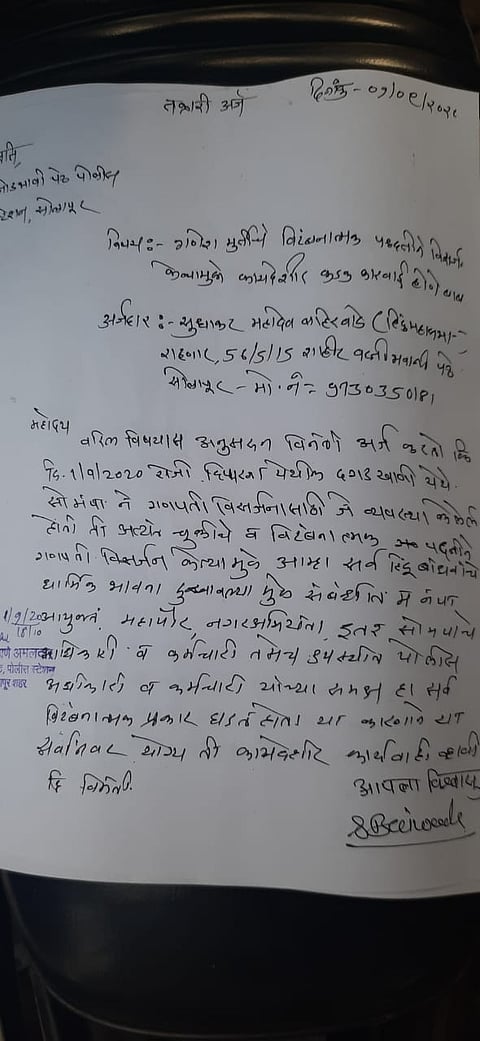 तक्रारी अर्ज
दिनांक - ०१/०९/२०२०
प्रति,
जोडभावी पेठ पोलीस
स्टेशन, सोलापूर
विषय:- गणेश मुर्तीचे विटंबनात्मक पध्दतीने विसर्जन
केल्यामुळे कायदेशीर कडक कारवाई होणे बाब
अर्जदार :- सुधाकर महादेव बहिरवाडे (हिंदुमहासभा-
राहणार, 56/5/15 शाहीर वस्ती भवानी पेठ
सोलापूर - मो. नं = 9730350181
महोदय
वरिल विषयास अनुसरुन विनंती अर्ज करतो कि
दि. 1/9/2020 रोजी येथील दगड खाणी येथे
सोमंपा ने गणपती विसर्जनासाठी जे व्यवस्था केलेले
होती ती अत्यंत चुकीचे व विटंबनात्मक पध्दतीने
गणपती विसर्जन केल्यामुळे आम्हा सर्व हिंदू बांधवांचे
धार्मिक भावना दुखावल्या मुळे संबंधीत म नपा
आयुक्त, महापौर, नगरअभियंता, इतर सोमपाचे
अधिकारी व कर्मचारी तसेच उपस्थीत पोलीस
अधीकारी व कर्मचारी यांच्या समक्ष हा सर्व
विटंबनात्मक प्रकार घडले होता या कारणाने या
सर्वांनवर योग्य ती कायदेशीर कार्यवाही व्हावी
हि विनंती.
आपला विश्वासू
1/9/20
18/10
ठाणे अमलदार
पेठ, पोलीस स्टेशन
सोलापूर शहर